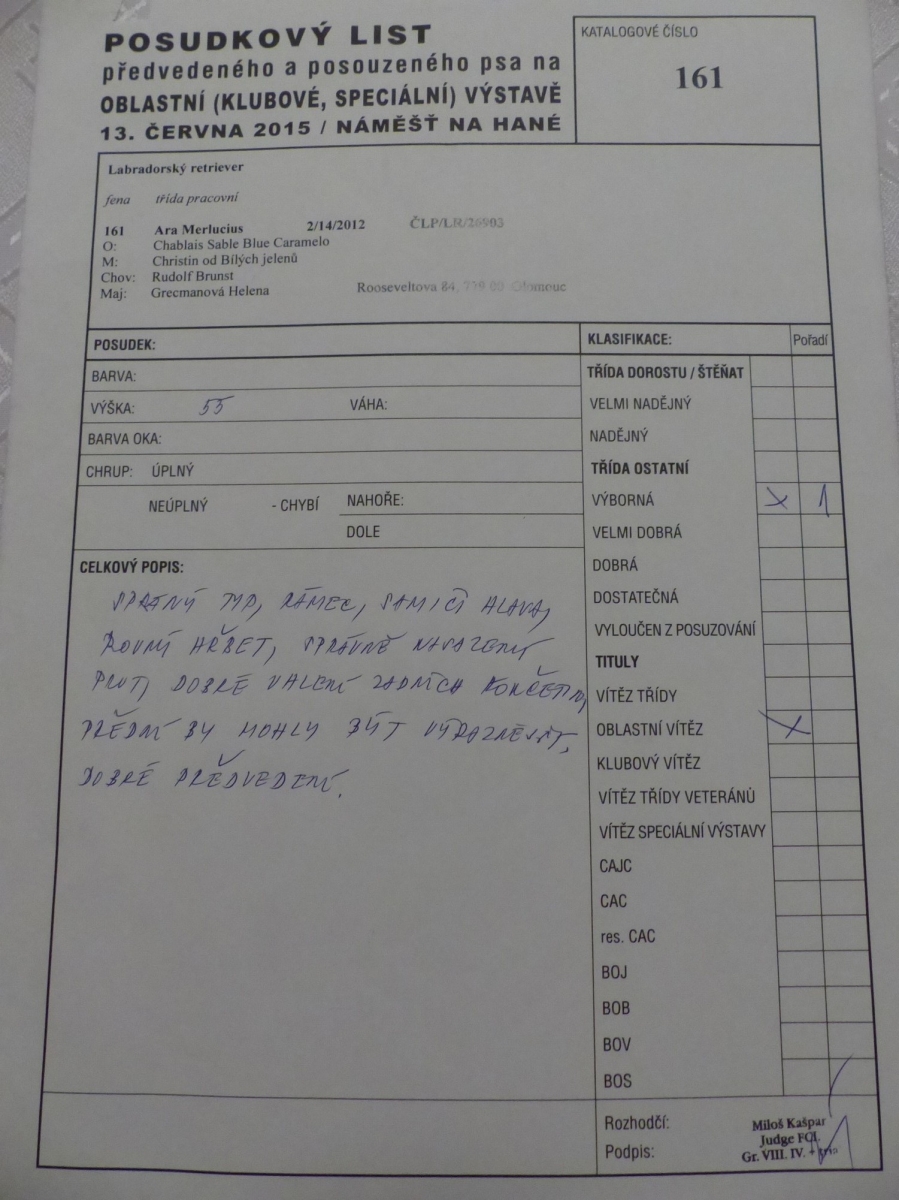 POSUDKOVÝ LIST
předvedeného a posouzeného psa na
OBLASTNÍ (KLUBOVÉ, SPECIÁLNÍ) VÝSTAVĚ
13. ČERVNA 2015 / NÁMĚŠŤ NA HANÉ
KATALOGOVÉ ČÍSLO
161
Labradorský retriever
fena třída pracovní
161 Ara Merlucius 2/14/2012 ČLP/LR/26903
O: Chablais Sable Blue Caramelo
M: Christin od Bílých jelenů
Chov: Rudolf Brunst
Maj: Grecmanová Helena Rooseveltova 84, 779 00 Olomouc
POSUDEK:
BARVA:
VÝŠKA: 55 VÁHA:
BARVA OKA:
CHRUP: ÚPLNÝ
NEÚPLNÝ - CHYBÍ NAHOŘE:
DOLE
CELKOVÝ POPIS:
SPRÁVNÝ TYP, RÁMEC, SAMIČÍ HLAVA,
ROVNÝ HŘBET, SPRÁVNĚ NASAZENÝ
PRUT, DOBRÉ ÚHLENÍ ZADNÍCH KONČETIN,
PŘEDNÍ BY MOHLY BÝT VÝRAZNĚJŠÍ,
DOBRÉ PŘEDVEDENÍ.
KLASIFIKACE: Pořadí
TŘÍDA DOROSTU / ŠTĚŇAT
VELMI NADĚJNÝ
NADĚJNÝ
TŘÍDA OSTATNÍ
VÝBORNÁ X 1
VELMI DOBRÁ
DOBRÁ
DOSTATEČNÁ
VYLOUČEN Z POSUZOVÁNÍ
TITULY
VÍTĚZ TŘÍDY
OBLASTNÍ VÍTĚZ X
KLUBOVÝ VÍTĚZ
VÍTĚZ TŘÍDY VETERÁNŮ
VÍTĚZ SPECIÁLNÍ VÝSTAVY
CAJC
CAC
res. CAC
BOJ
BOB
BOV
BOS
Rozhodčí: Miloš Kašpar
Judge FCI.
Podpis: Gr. VIII. IV. +